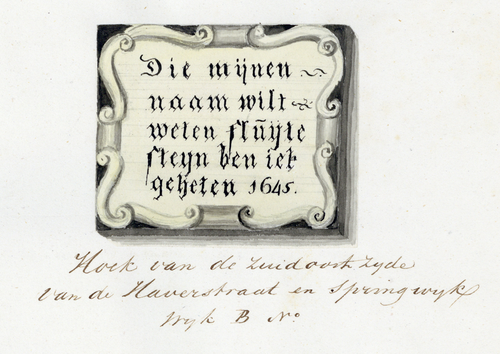 Die mijnen
naam wilt
weten slũyte
steyn ben ick
geheten 1645.
Hoek van de Zuidoost Zyde
van de Haverstraat en Springwyk
Wyk B No.